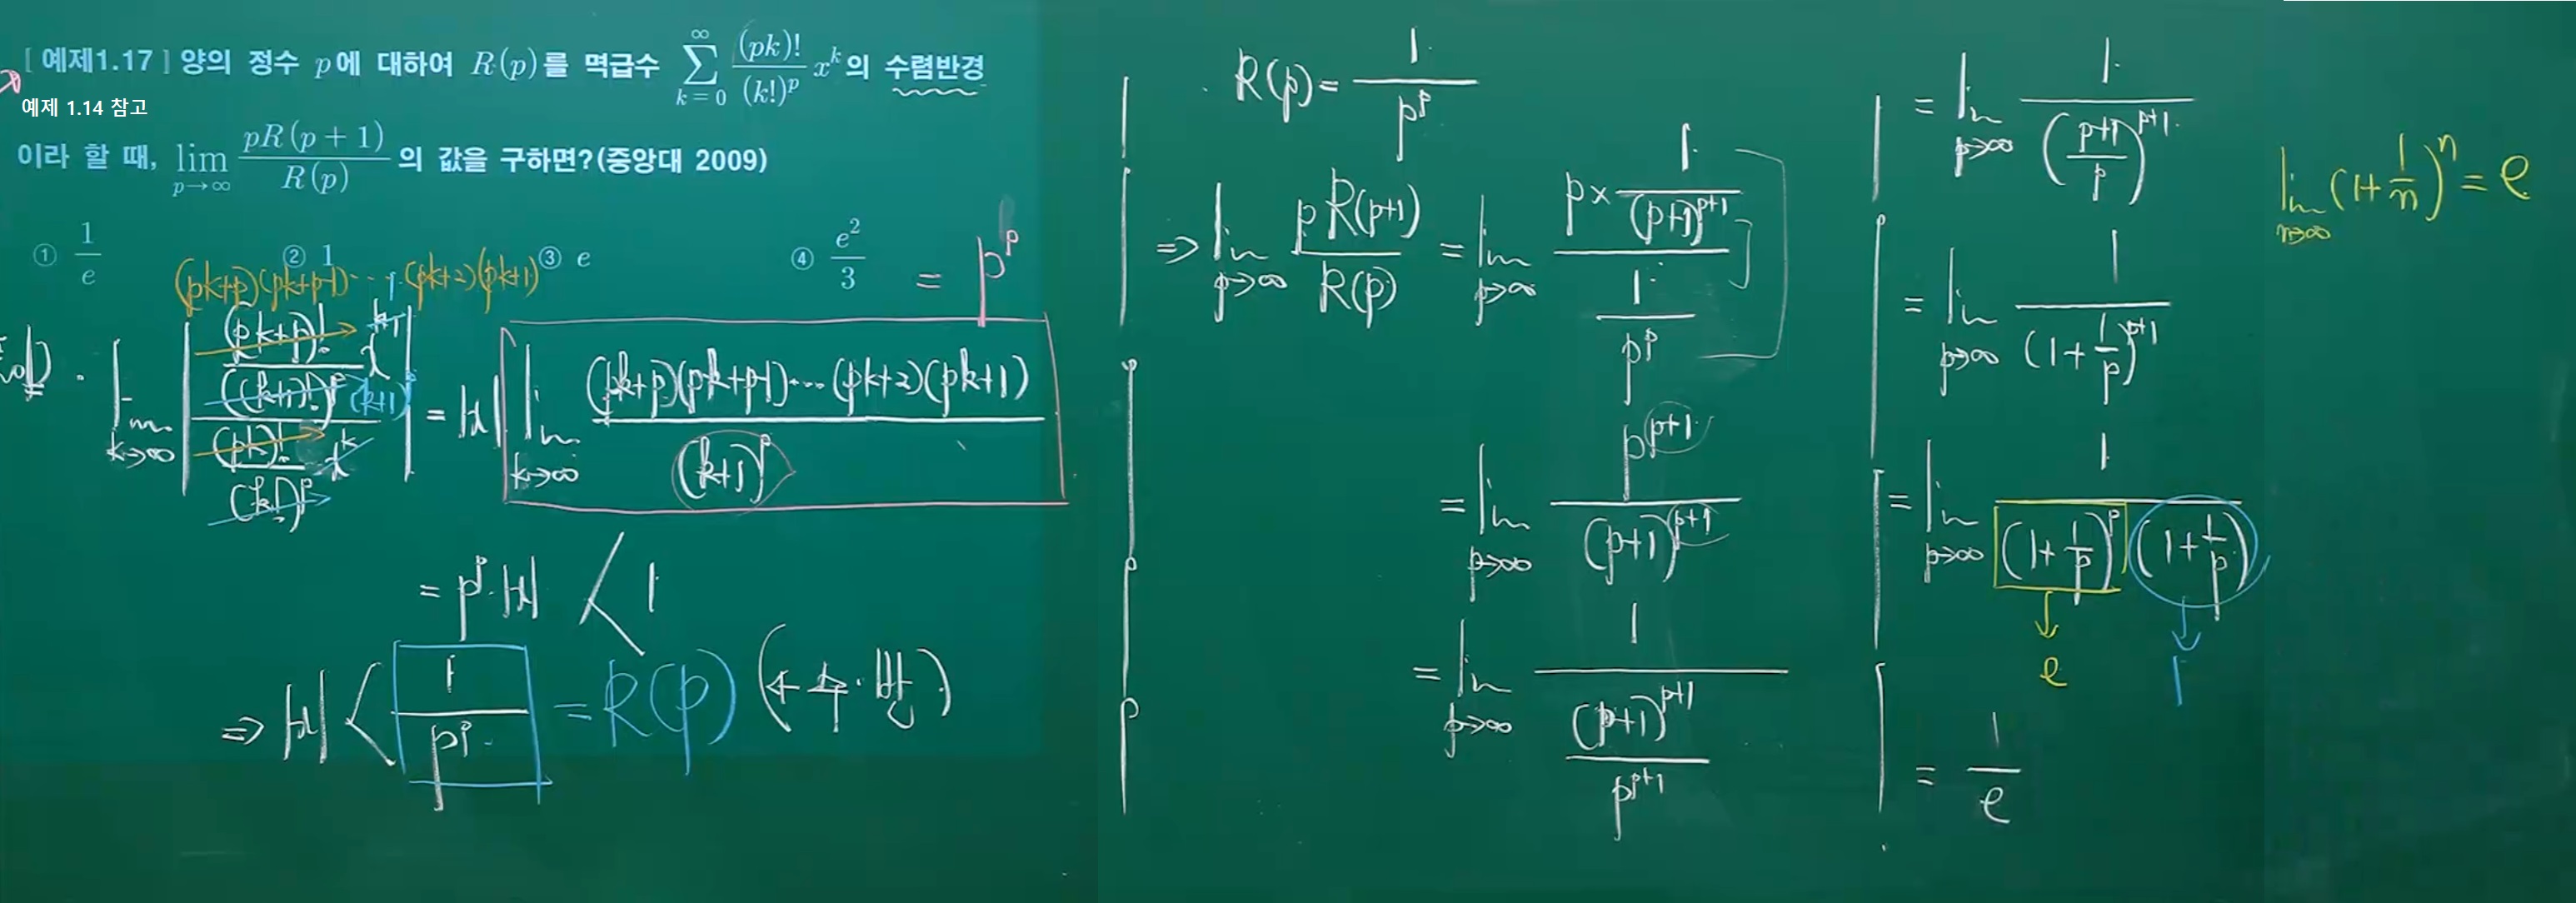 [ 예제1.17 ] 양의 정수 p에 대하여 R(p)를 멱급수 \sum_{k=0}^{\infty} \frac{(pk)!}{(k!)^p} x^k의 수렴반경
예제 1.14 참고
이라 할 때, \lim_{p→∞} \frac{pR(p+1)}{R(p)} 의 값을 구하면?(중앙대 2009)
① \frac{1}{e} ② 1 ③ e ④ \frac{e^2}{3}
(pk+p)(pk+p-1)⋯(pk+2)(pk+1)
= p^p
sol) . \lim_{k→∞} \left| \frac{\frac{(pk+p)! x^{k+1}}{((k+1)!)^p}}{\frac{(pk)! x^k}{(k!)^p}} \right| = |x| \lim_{k→∞} \frac{(pk+p)(pk+p-1)⋯(pk+2)(pk+1)}{(k+1)^p}
(k+1)^p
= p^p·|x| < 1
⇒ |x| < \frac{1}{p^p} = R(p) (← 수.반)
. R(p) = \frac{1}{p^p}
⇒ \lim_{p→∞} \frac{pR(p+1)}{R(p)} = \lim_{p→∞} \frac{p × \frac{1}{(p+1)^{p+1}}}{\frac{1}{p^p}}
= \lim_{p→∞} \frac{p^{p+1}}{(p+1)^{p+1}}
= \lim_{p→∞} \frac{1}{\frac{(p+1)^{p+1}}{p^{p+1}}}
= \lim_{p→∞} \frac{1}{(\frac{p+1}{p})^{p+1}}
= \lim_{p→∞} \frac{1}{(1+\frac{1}{p})^{p+1}}
= \lim_{p→∞} \frac{1}{(1+\frac{1}{p})^p (1+\frac{1}{p})}
↓ e ↓ 1
= \frac{1}{e}
\lim_{n→∞} (1+\frac{1}{n})^n = e